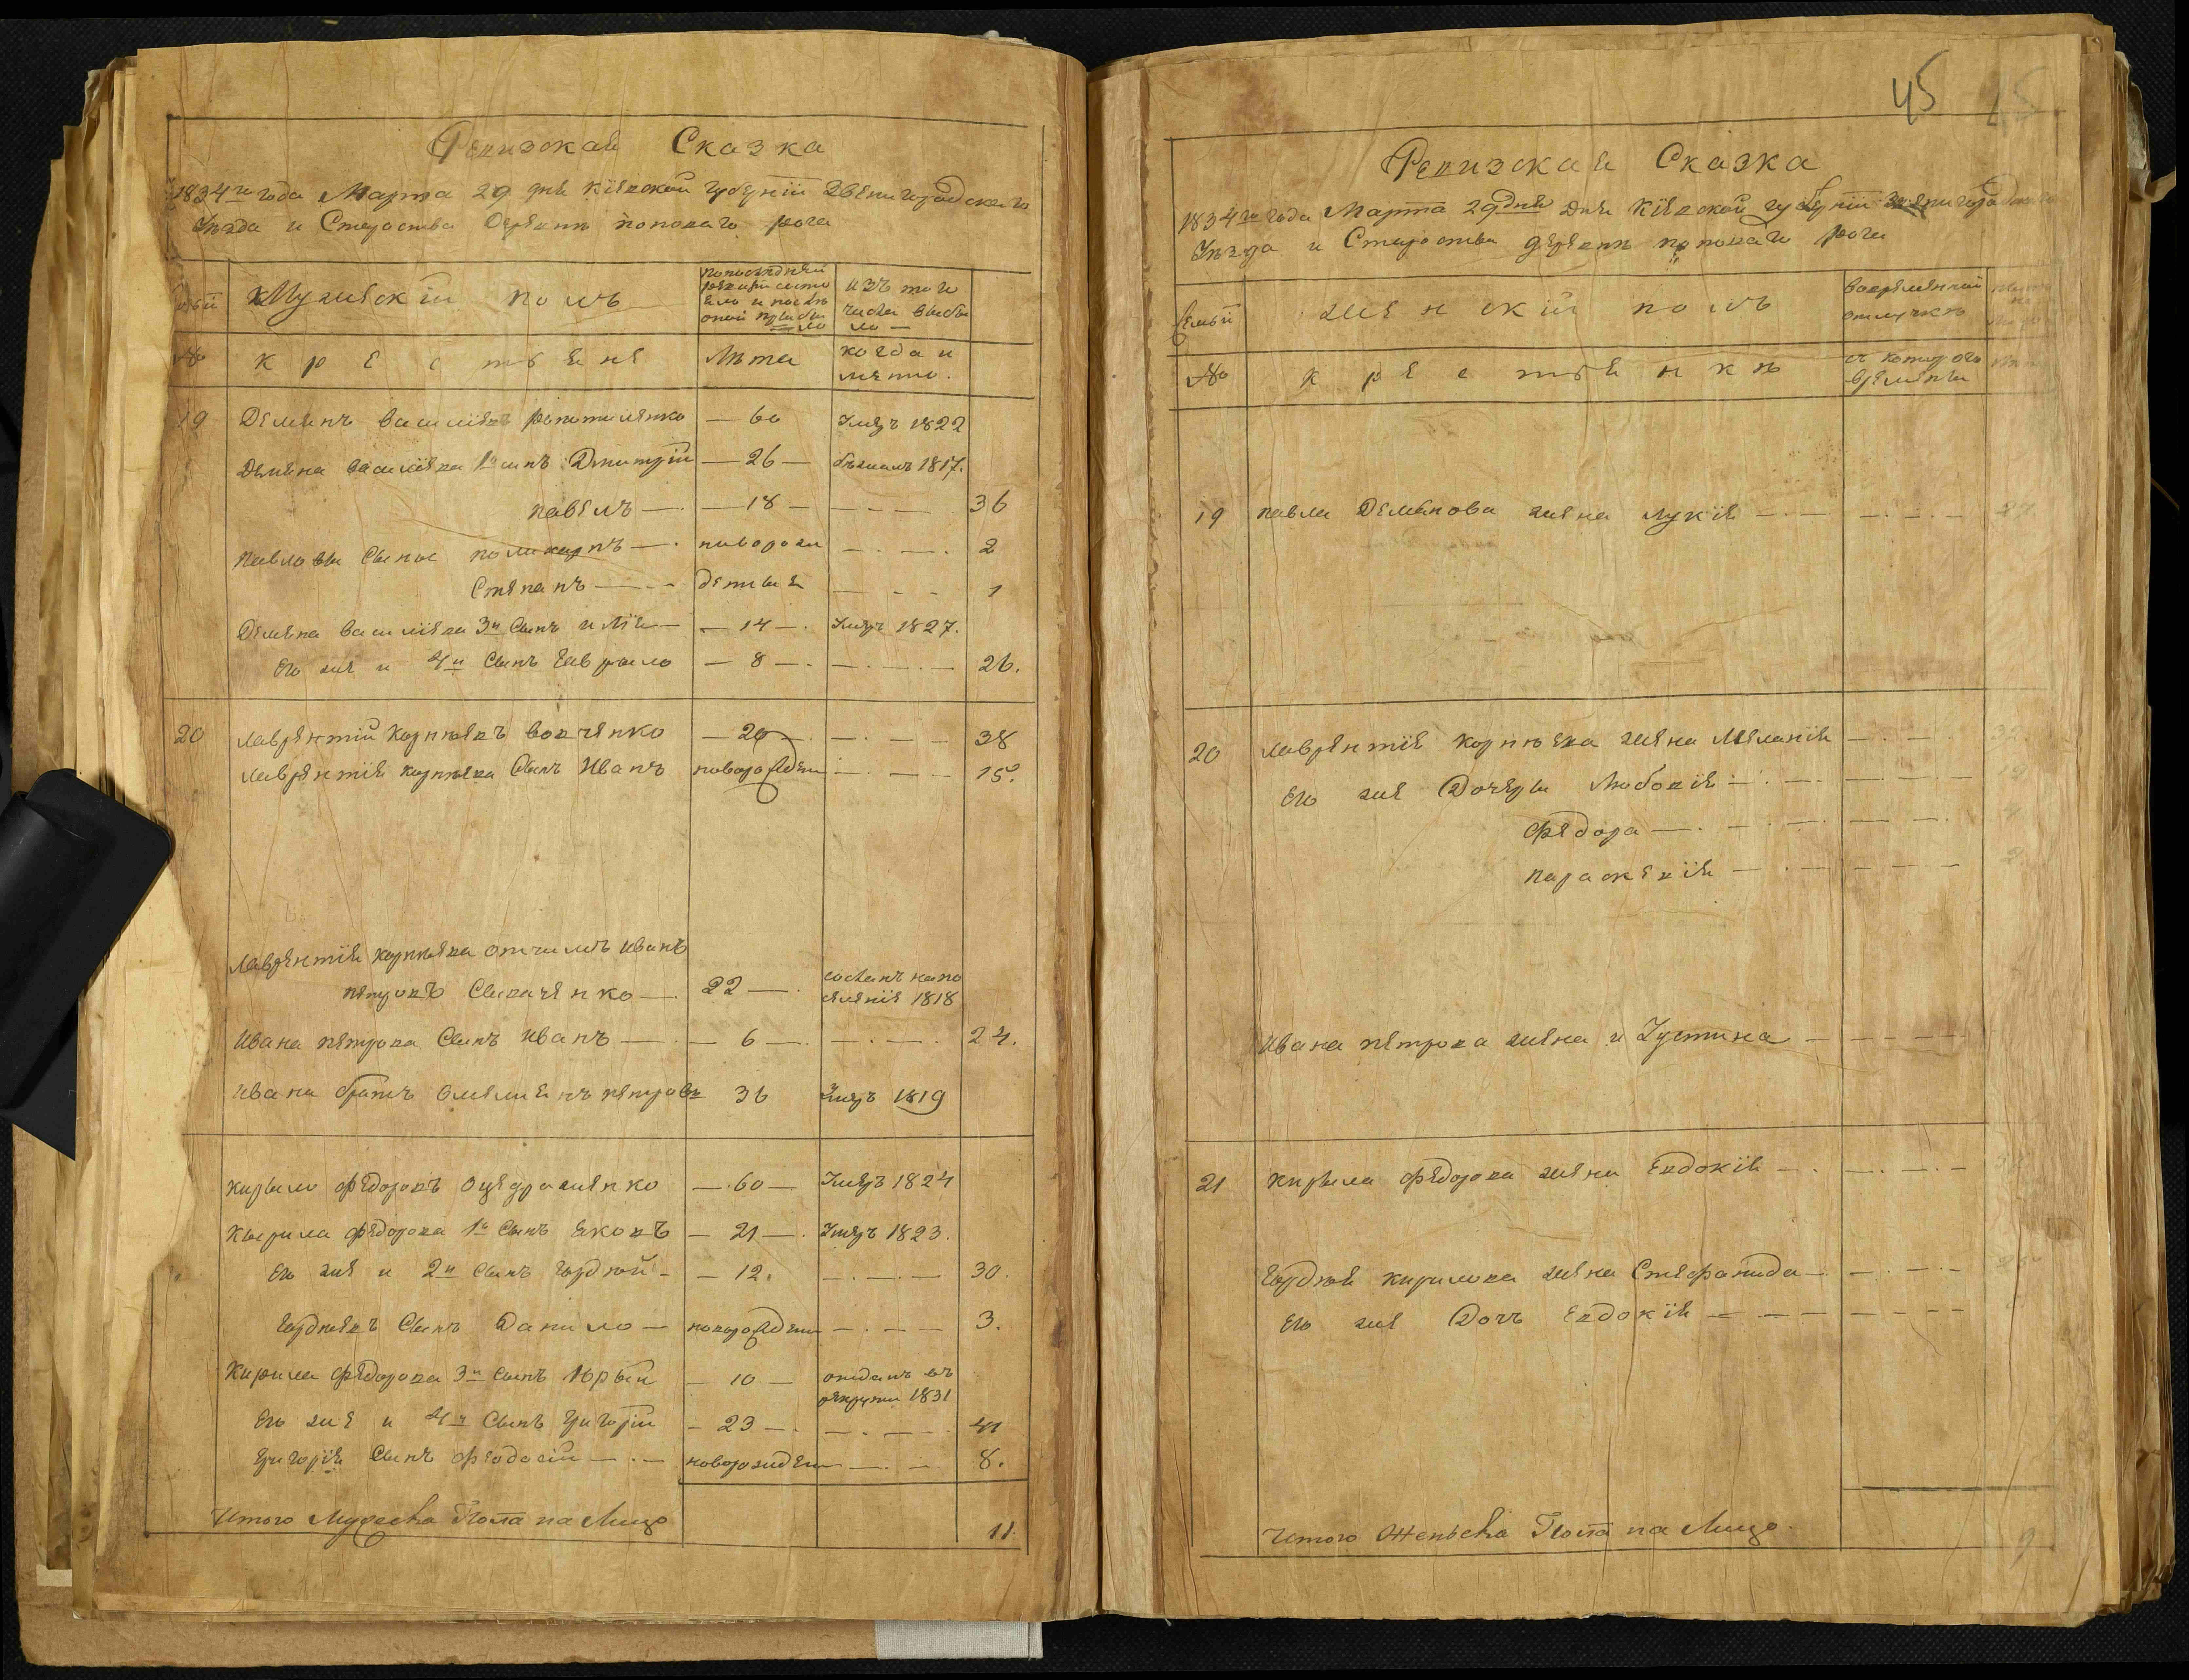 Ревизская Сказка
1834го года Марта 29 дня Кіевской губерніи Звенигородскаго
Уезда и Староства Деревни поповаго рога
мужискій полъ
попоследней ревизіи состояло и после оной прибыло
изъ того числа выбыло
№ крестьяне Лета когда и менно.
19 Демянъ василіевъ ропотиленко — 60 Умеръ 1822
Демяна василіева 1й сынъ Дмитрій — 26 — бежалъ 1817.
павелъ — 18 — 36
павловы Сыны поликарпъ — новорож 2
Степанъ — денные 1
Демяна василіева 3й Сынъ илія — 14 — Умеръ 1827.
Его же и 4й Сынъ Гаврыло — 8 — 26.
20 лаврентій корнеевъ вовченко — 20 — 38
лаврентія корнеева Сынъ Иванъ новорожден 15.
лаврентія корнеева отчимъ иванъ
петровъ Сываченко — 22 — сосланъ на по
селеніе 1818
ивана петрова Сынъ иванъ — 6 — 24.
ивана братъ омелянъ петровъ 36 Умеръ 1819
кирыло федоровъ — 60 — Умеръ 1824
кырила федорова 1й Сынъ яковъ — 21 — Умеръ 1823.
Его же и 2й Сынъ гордей — 12. 30.
гордеевъ Сынъ Данило — новорожден 3.
кирила федорова 3й Сынъ Юрый — 10 — отданъ въ
рекруты 1831
Его же и 4й Сынъ григорій — 23 — 41
григорія Сынъ феодосій — новорожден 8.
Итого Мужеска Пола на Лицо 11.
45
Ревизская Сказка
1834го года Марта 29 дня Дня Кіевской губерніи
Уезда и Староства деревни поповаго рога
Семьи женскій полъ вовременной отлучке
№ крестьянки съ которого времены
19 павла Демянова жена лукія — 27
20 лаврентія корнеева жена Меланія —
Его же Дочеры Любовія — 19
федора —
параскевія — 2.
ивана петрова жена иУстина —
21 кирыла федорова жена Евдокія —
гордея кирилова жена Стефанида —
Его же Дочъ Евдокія —
Итого Женьска Пола на Лицо. 9